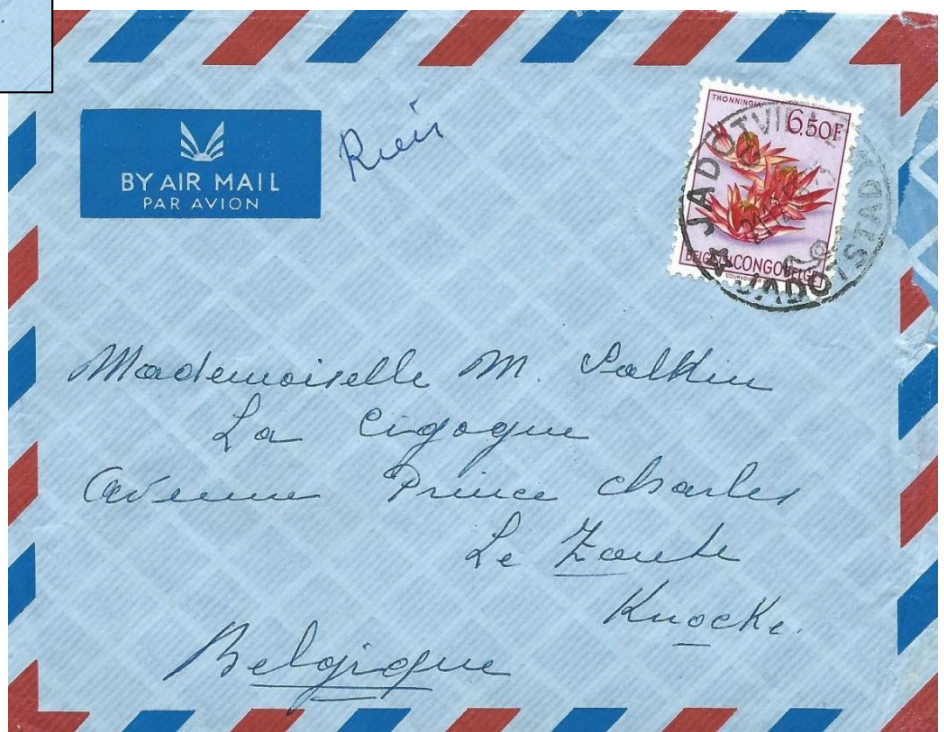 BY AIR MAIL
PAR AVION
THONNINGIA
6,50F
JADOTVILLE
JADOTSTAD
Mademoiselle M.
La Cigogne
Avenue Prince Charles
Le Zoute
Knocke.
Belgique